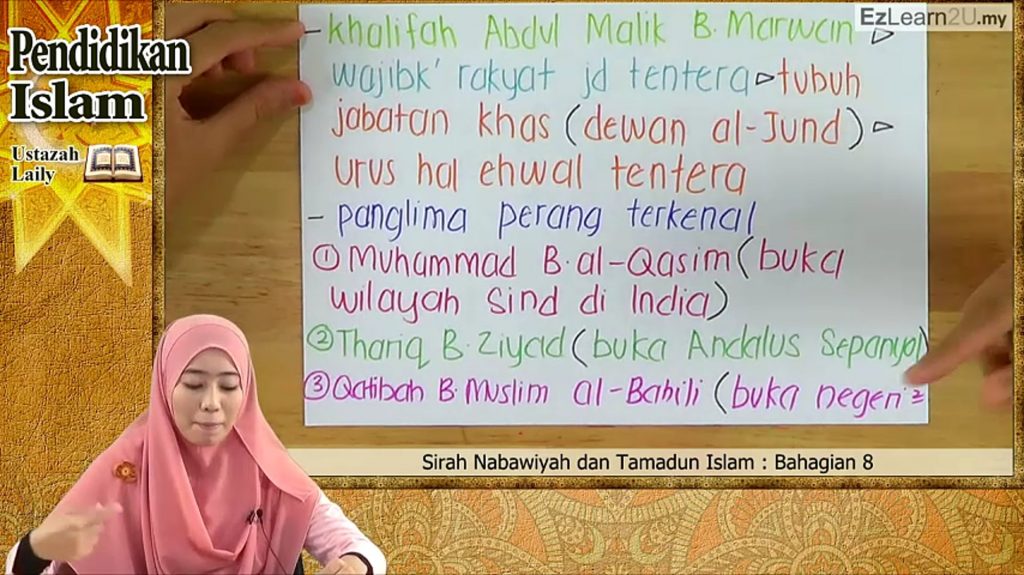 Pendidikan
Islam
Ustazah
Laily
EzLearn2U.my
- Khalifah Abdul Malik B. Marwan ▷
wajibk' rakyat jd tentera ▷ tubuh
jabatan khas (dewan al-Jund) ▷
urus hal ehwal tentera
- panglima perang terkenal
① Muhammad B. al-Qasim (buka
wilayah Sind di India)
② Thariq B. Ziyad (buka Andalus Sepanyol)
③ Qatibah B. Muslim al-Bahili (buka negeri²
Sirah Nabawiyah dan Tamadun Islam : Bahagian 8